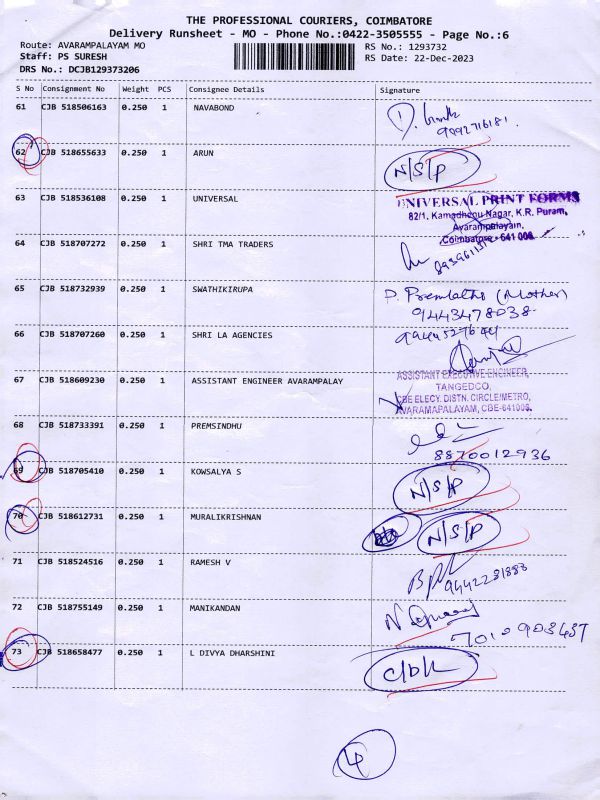 THE PROFESSIONAL COURIERS, COIMBATORE
Delivery Runsheet - MO - Phone No.:0422-3505555 - Page No.:6
Route: AVARAMPALAYAM MO
RS No.: 1293732
Staff: PS SURESH
RS Date: 22-Dec-2023
DRS No.: DCJB129373206
S No Consignment No Weight PCS Consignee Details Signature
61 CJB 518506163 0.250 1 NAVABOND
9992716181.
62 CJB 518655633 0.250 1 ARUN N/S/P
63 CJB 518536108 0.250 1 UNIVERSAL UNIVERSAL PRINT FORMS
82/1, Kamadhenu Nagar, K.R. Puram,
Avarampalayam,
Coimbatore - 641 006
64 CJB 518707272 0.250 1 SHRI TMA TRADERS
65 CJB 518732939 0.250 1 SWATHIKIRUPA P. Premlatha (Mother)
9443478038
66 CJB 518707260 0.250 1 SHRI LA AGENCIES
67 CJB 518609230 0.250 1 ASSISTANT ENGINEER AVARAMPALAY ASSISTANT EXECUTIVE ENGINEER,
TANGEDCO,
CBE ELECY. DISTN. CIRCLE/METRO,
AVARAMAPALAYAM, CBE-641006.
68 CJB 518733391 0.250 1 PREMSINDHU
8870012936
69 CJB 518705410 0.250 1 KOWSALYA S N/S/P
70 CJB 518612731 0.250 1 MURALIKRISHNAN N/S/P
71 CJB 518524516 0.250 1 RAMESH V
72 CJB 518755149 0.250 1 MANIKANDAN
7010903437
73 CJB 518658477 0.250 1 L DIVYA DHARSHINI
4